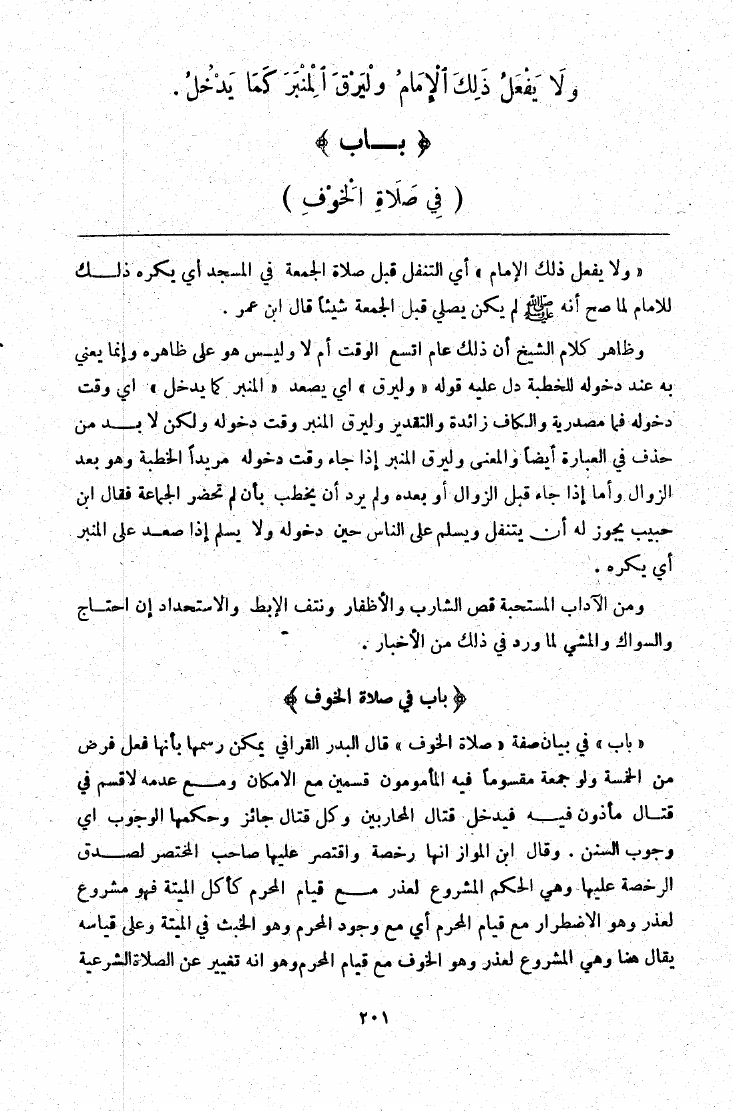 ولَا يَفْعَلُ ذَلِكَ ٱلْإِمَامُ ولْيَرْقَ ٱلْمِنْبَرَ كَمَا يَدْخُلُ .
﴿ بـــاب ﴾
( فِي صَلَاةِ الْخَوْفِ )
« ولا يفعل ذلك الإمام » أي التنفل قبل صلاة الجمعة في المسجد أي يكره ذلـــك
للامام لما صح أنه ﷺ لم يكن يصلي قبل الجمعة شيئاً قال ابن عمر .
وظاهر كلام الشيخ أن ذلك عام اتسع الوقت أم لا وليـس هو على ظاهره وإنما يعني
به عند دخوله للخطبة دل عليه قوله « وليرق » اي يصعد « المنبر كما يدخل » اي وقت
دخوله فما مصدرية والكاف زائدة والتقدير وليرق المنبر وقت دخوله ولكن لا بـــد من
حذف في العبارة أيضاً والمعنى وليرق المنبر إذا جاء وقت دخوله مريداً الخطبة وهو بعد
الزوال وأما إذا جاء قبل الزوال أو بعده ولم يرد أن يخطب بأن لم تحضر الجماعة فقال ابن
حبيب يجوز له أن يتنفل ويسلم على الناس حين دخوله ولا يسلم إذا صعـد على المنبر
أي يكره .
ومن الآداب المستحبة قص الشارب والأظفار ونتف الإبط والاستحداد إن احتـاج
والسواك والمشي لما ورد في ذلك من الأخبار .
﴿ باب في صلاة الخوف ﴾
« باب » في بيان صفة « صلاة الخوف » قال البدر القرافي يمكن رسمها بأنها فعل فرض
من الخمسة ولو جمعة مقسوماً فيه المأمومون قسمين مع الامكان ومـــع عدمه لا قسم في
قتـال مأذون فيـــه فيدخل قتال المحاربين وكل قتال جائز وحكمها الوجوب اي
وجوب السنن . وقال ابن المواز انها رخصة واقتصر عليها صاحب المختصر لصـــدق
الرخصة عليها وهي الحكم المشروع لعذر مـــع قيام المحرم كأكل الميتة فهو مشروع
لعذر وهو الاضطرار مع قيام المحرم أي مع وجود المحرم وهو الخبث في الميتة وعلى قياسه
يقال هنا وهي المشروع لعذر وهو الخوف مع قيام المحرم وهو انه تغيير عن الصلاة الشرعية
٢٠١